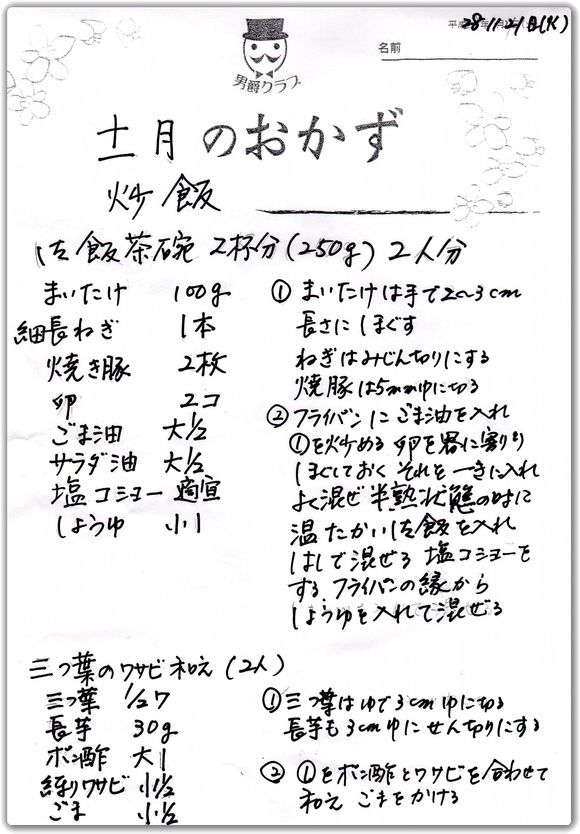 平成28年11月21日(火)
名前
男爵クラブ
十一月のおかず
炒飯
ご飯茶碗 2杯分(250g) 2人分
まいたけ 100g
細長ねぎ 1本
焼き豚 2枚
卵 2コ
ごま油 大1/2
サラダ油 大1/2
塩コショー 適宜
しょうゆ 小1
① まいたけは手で2~3cm
長さにほぐす
ねぎはみじん切りにする
焼豚は5mmゆに切る
② フライパンにごま油を入れ
①を炒める 卵を器に割り
ほぐしておく それを一きに入れ
よく混ぜ 半熟状態の時に
温たかいご飯を入れ
はしで混ぜる 塩コショーを
する フライパンの縁から
しょうゆを入れて混ぜる
三つ葉のワサビ和え(2人)
三つ葉 1/2ワ
長芋 30g
ポン酢 大1
練りワサビ 小1/2
ごま 小1/2
① 三つ葉はゆで3cmゆに切る
長芋も3cmゆにせん切りにする
② ①をポン酢とワサビを合わせて
和え ごまをかける